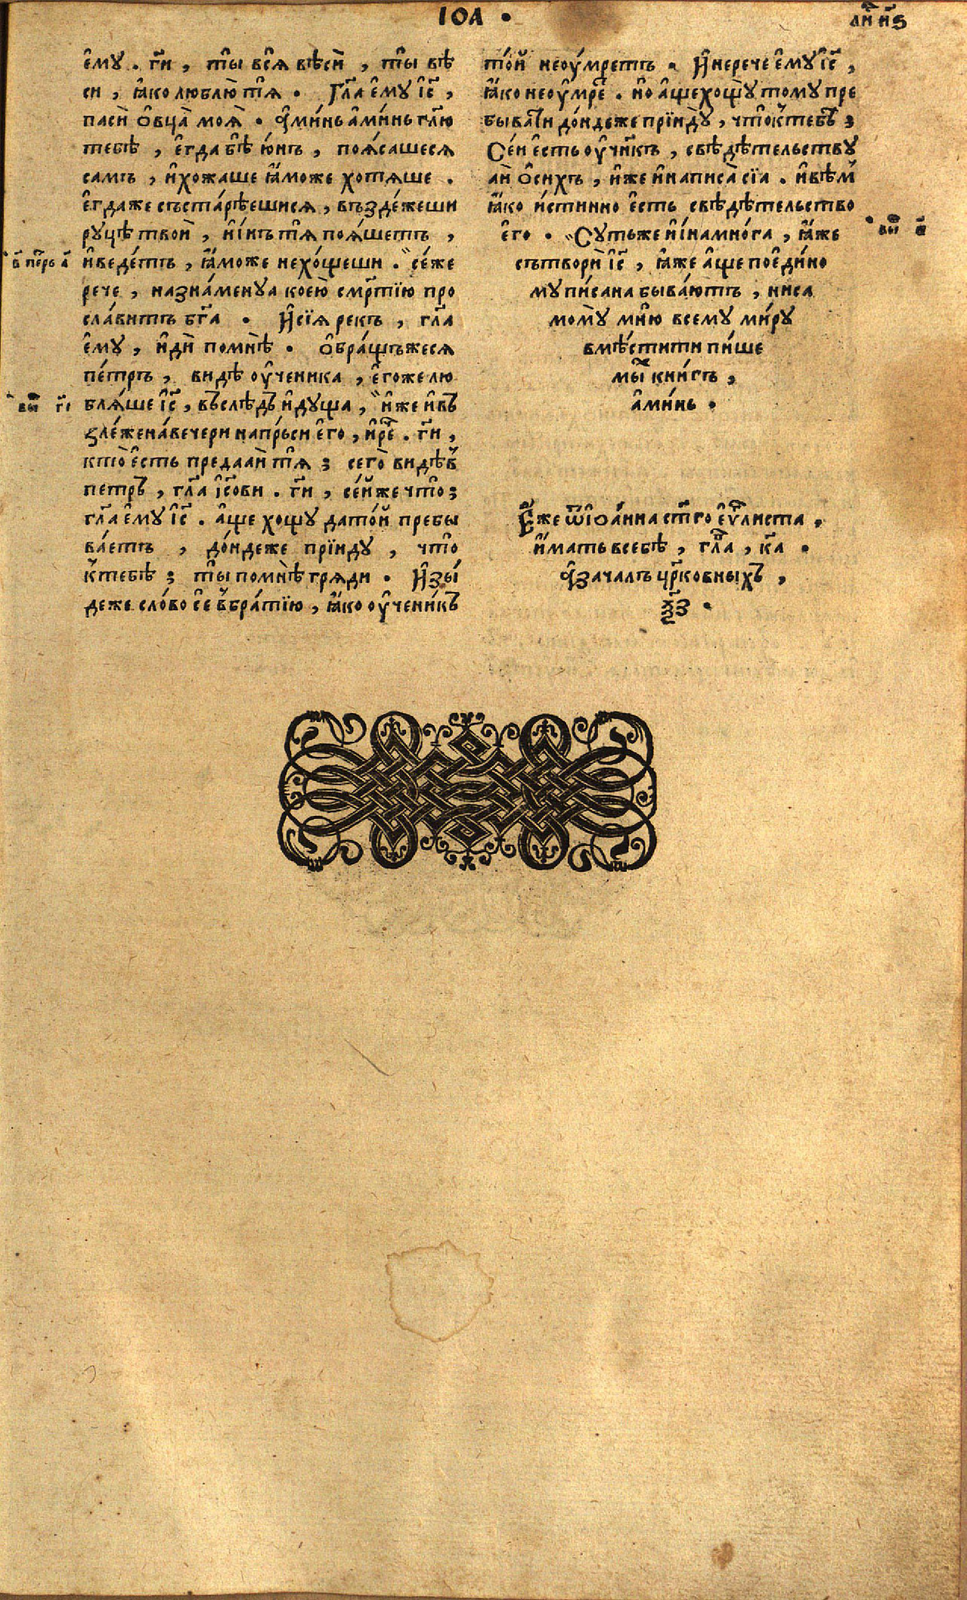 ІОА .
ли́ н҃ѕ
е҆му . гд҃и , ты̀ всѧ̀ вѣ́си , ты̀ вѣ
си , ꙗ҆́ко люблю́ тѧ . Гл҃а е҆му І҆с҃ ,
пасѝ о҆вца̀ моѧ̀ . А҆ми́нь а҆ми́нь гл҃ю
тебѣ̀ , е҆гда̀ бѣ̀ ю҆́нъ , поѧ́сашесѧ
самъ , и҆ хожаше ꙗ҆́може хотѧ́ше .
е҆гда́же съста́рѣешисѧ , въздѣ́жеши
ру́цѣ твои̂ , и҆ и҆́нъ тѧ̀ поѧ́шетъ ,
и҆ веде́тъ , ꙗ҆́може не хо́щеши . се́же
рече , назна́менуа кое́ю см҃ртїю про
сла́витъ бг҃а . И҆ сїѧ̀ рекъ , гл҃а
е҆му̀ , и҆ди̂ помнѣ̀ . о҆бра́щъжесѧ
пе́тръ , видѣ̀ оу҆ченика , е҆го́же лю
блѧ́ше І҆с҃ , въслѣ́дъ и҆ду́ща , и҆́же и҆ въ
зле́же на ве́чери на пр́ьси е҆го̀ , и҆ ре҃ . гд҃и ,
кто̀ е҆сть предаѧ́и тѧ̀ ; сего̀ видѣ́в
петръ , гл҃а І҆с҃ови . гд҃и , се́йже что̀ ;
гл҃а е҆му І҆с҃ . а҆́ще хощу̀ да то́й пребы
ва́етъ , до́ндеже прїиду̀ , что̀
к̾тебѣ̀ ; ты̀ помнѣ̀ гряди̂ . И҆зы́
деже сло́во се̂ в̾бра́тїю , ꙗ҆́ко оу҆чени́къ
то́й не оу҆́мретъ . И҆ не рече е҆му І҆с҃ ,
ꙗ҆́ко не оу҆́мре . но а҆́ще хощу̀ тому пре
быва́ти до́ндеже прїиду̀ , что̀ к̾тебѣ̀ ;
Се́и е҆сть оу҆чн҃къ , свѣдѣ́тельству
ѧи̂ о҆ си́хъ , и҆́же и҆ написа̀ сїа̀ . и҆ вѣ́м
ꙗ҆́ко и҆́стинно е҆́сть свѣдѣ́тельство
е҆го̀ . Су́тьже и҆ и҆́на мно́га , ꙗ҆́же
сътвори̂ І҆с҃ , ꙗ҆́же а҆́ще по е҆ди́но
му пи́сана быва́ютъ , ни са
мому̀ мню̀ всему ми́ру
вмѣсти́ти пи́ше
мы́х̾ кни́гъ ,
а҆ми́нь .
Е҆́же ѿ І҆ѡа́нна ст҃го е҆ѵ҃листа ,
и҆́мать в себѣ̀ , гл҃а , к҃а .
А҆ зача́лъ цр҃ковныхъ ,
ѯ҃з .